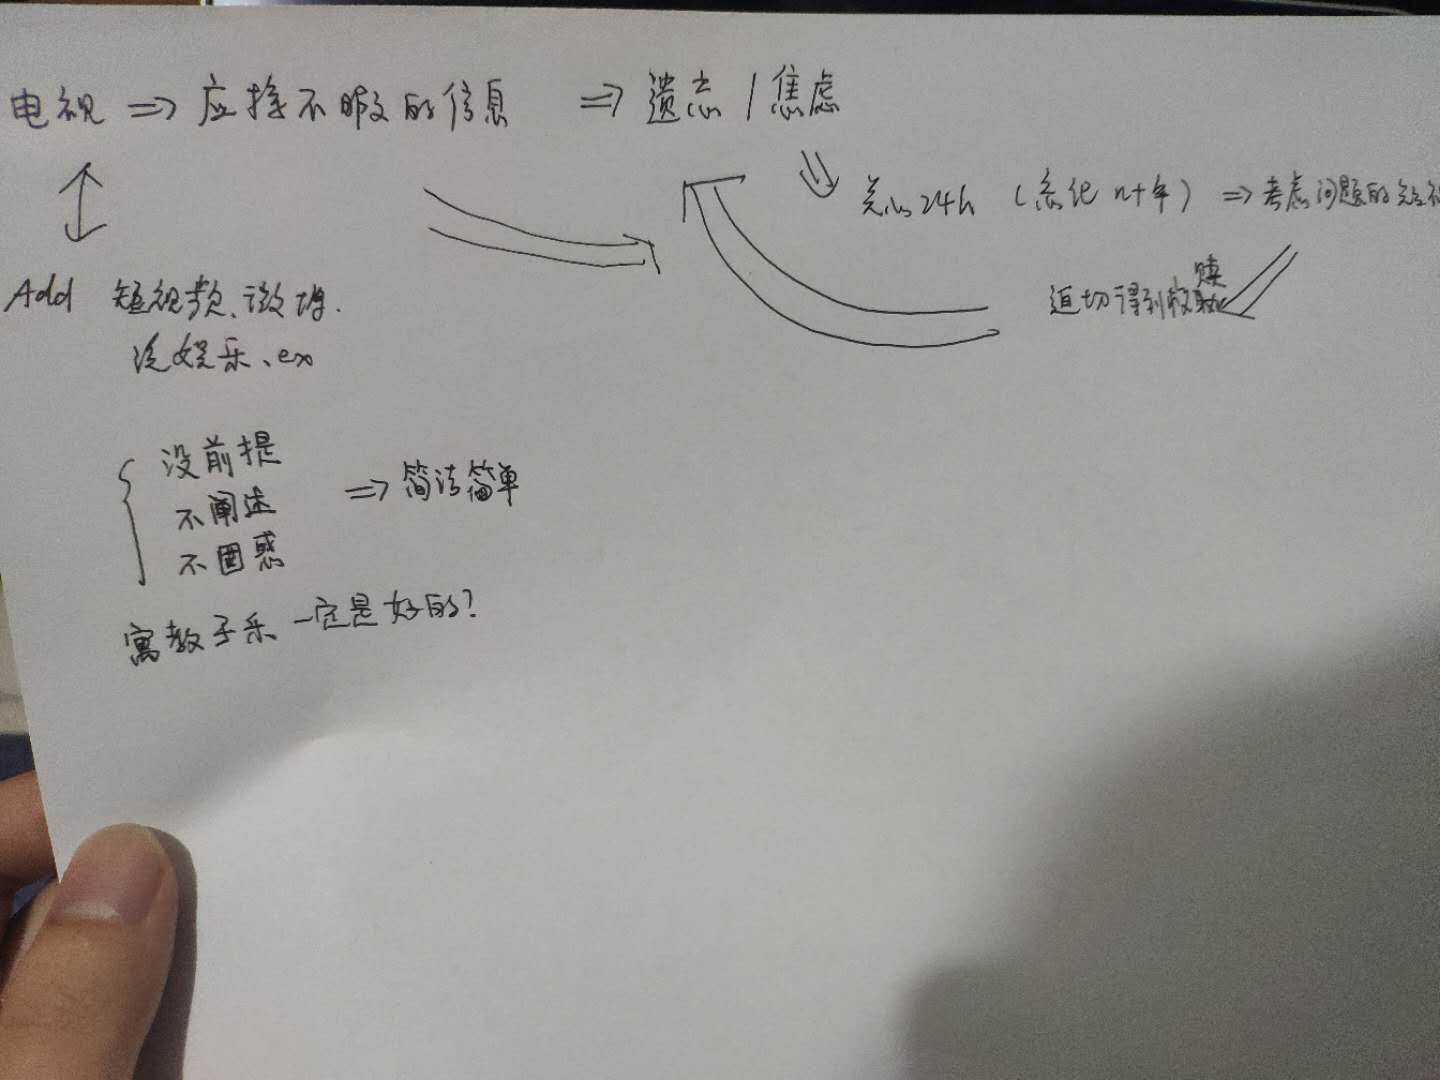 电视 ⇒ 应接不暇的信息 ⇒ 遗忘 / 焦虑
关心24h (忘记 n+年) ⇒ 考虑问题的
迫切得到救赎
Add 短视频、微博.
泛娱乐、ex
没前提
不阐述 ⇒ 简洁简单
不困惑
寓教于乐一定是好的?